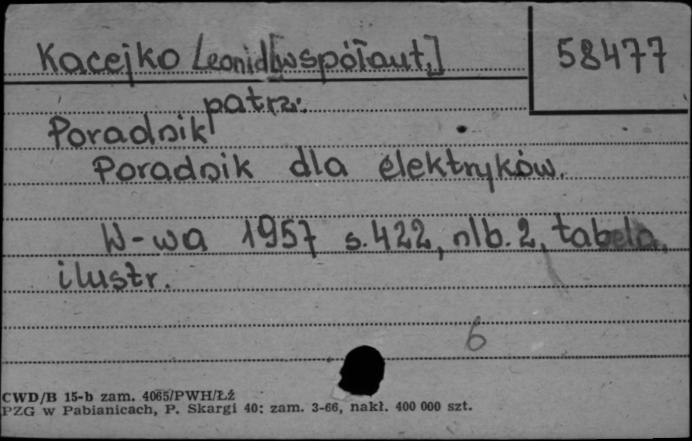 Kacejko Leonid [współaut.]
58477
patrz:
Poradnik
Poradnik dla elektryków.
W-wa 1957 s. 422, nlb. 2, tabela,
ilustr.
6
CWD/B 15-b zam. 4065/PWH/Łź
PZG w Pabianicach, P. Skargi 40; zam. 3-66, nakł. 400 000 szt.